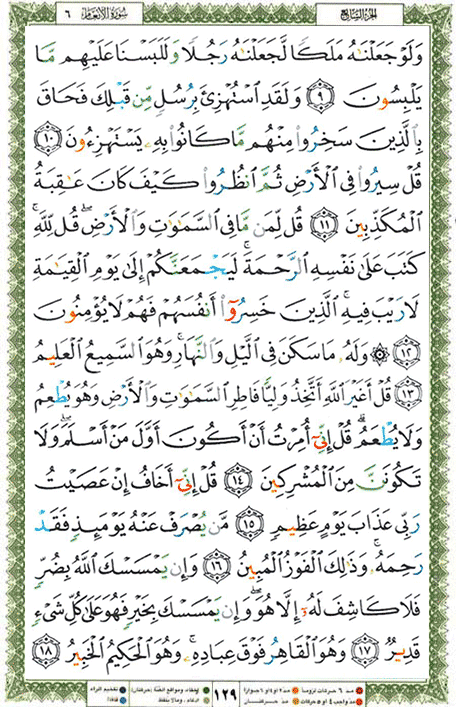 الجزء السابع ٦ سورة الأنعام
وَلَوْ جَعَلْنَٰهُ مَلَكًا لَّجَعَلْنَٰهُ رَجُلًا وَلَلَبَسْنَا عَلَيْهِم مَّا
يَلْبِسُونَ ٩ وَلَقَدِ ٱسْتُهْزِئَ بِرُسُلٍ مِّن قَبْلِكَ فَحَاقَ
بِٱلَّذِينَ سَخِرُوا۟ مِنْهُم مَّا كَانُوا۟ بِهِۦ يَسْتَهْزِءُونَ ١٠
قُلْ سِيرُوا۟ فِى ٱلْأَرْضِ ثُمَّ ٱنظُرُوا۟ كَيْفَ كَانَ عَٰقِبَةُ
ٱلْمُكَذِّبِينَ ١١ قُل لِّمَن مَّا فِى ٱلسَّمَٰوَٰتِ وَٱلْأَرْضِ ۖ قُل لِّلَّهِ ۚ
كَتَبَ عَلَىٰ نَفْسِهِ ٱلرَّحْمَةَ ۚ لَيَجْمَعَنَّكُمْ إِلَىٰ يَوْمِ ٱلْقِيَٰمَةِ
لَا رَيْبَ فِيهِ ۚ ٱلَّذِينَ خَسِرُوٓا۟ أَنفُسَهُمْ فَهُمْ لَا يُؤْمِنُونَ
١٢ ۞ وَلَهُۥ مَا سَكَنَ فِى ٱلَّيْلِ وَٱلنَّهَارِ ۚ وَهُوَ ٱلسَّمِيعُ ٱلْعَلِيمُ
١٣ قُلْ أَغَيْرَ ٱللَّهِ أَتَّخِذُ وَلِيًّا فَاطِرِ ٱلسَّمَٰوَٰتِ وَٱلْأَرْضِ وَهُوَ يُطْعِمُ
وَلَا يُطْعَمُ ۗ قُلْ إِنِّىٓ أُمِرْتُ أَنْ أَكُونَ أَوَّلَ مَنْ أَسْلَمَ ۖ وَلَا
تَكُونَنَّ مِنَ ٱلْمُشْرِكِينَ ١٤ قُلْ إِنِّىٓ أَخَافُ إِنْ عَصَيْتُ
رَبِّى عَذَابَ يَوْمٍ عَظِيمٍ ١٥ مَّن يُصْرَفْ عَنْهُ يَوْمَئِذٍ فَقَدْ
رَحِمَهُۥ ۚ وَذَٰلِكَ ٱلْفَوْزُ ٱلْمُبِينُ ١٦ وَإِن يَمْسَسْكَ ٱللَّهُ بِضُرٍّ
فَلَا كَاشِفَ لَهُۥٓ إِلَّا هُوَ ۖ وَإِن يَمْسَسْكَ بِخَيْرٍ فَهُوَ عَلَىٰ كُلِّ شَىْءٍ
قَدِيرٌ ١٧ وَهُوَ ٱلْقَاهِرُ فَوْقَ عِبَادِهِۦ ۚ وَهُوَ ٱلْحَكِيمُ ٱلْخَبِيرُ ١٨
١٢٩